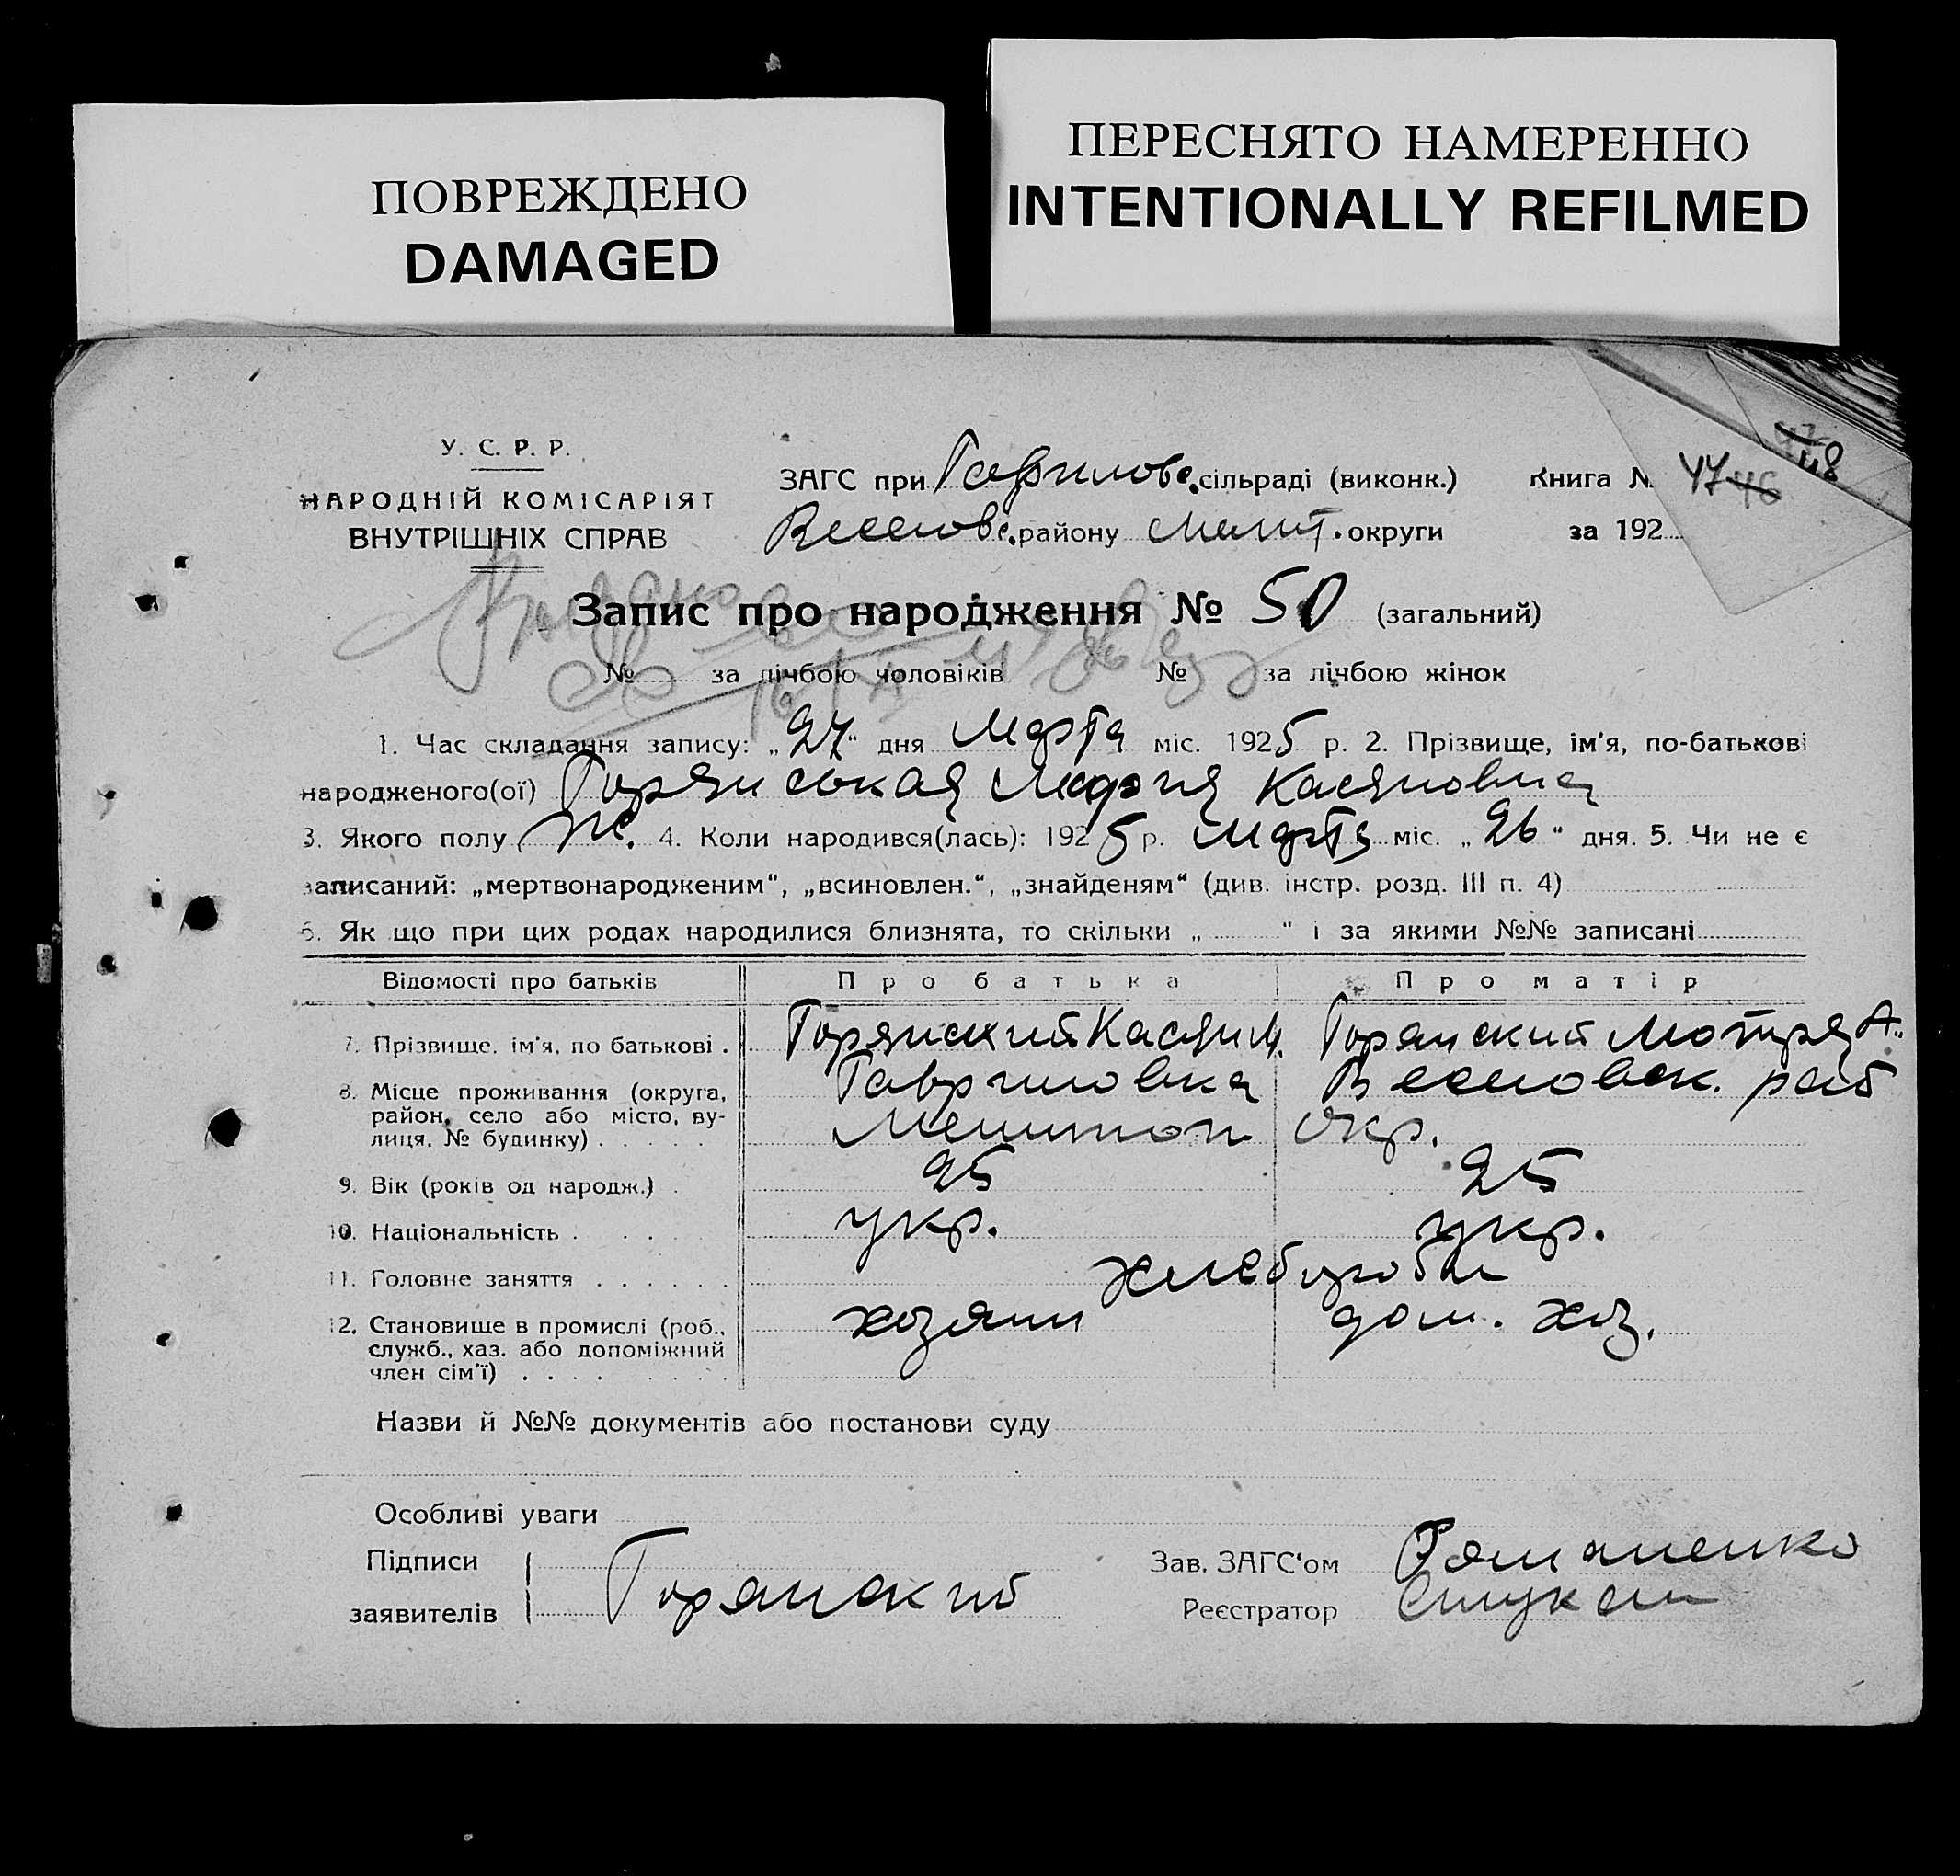 ПОВРЕЖДЕНО
DAMAGED
ПЕРЕСНЯТО НАМЕРЕННО
INTENTIONALLY REFILMED
У. С. Р. Р.
НАРОДНІЙ КОМІСАРІЯТ
ВНУТРІШНІХ СПРАВ
ЗАГС при Гаврилов. сільраді (виконк.)
Веселовс. району Мелит. округи
Книга № 47 46
48
за 192
Запис про народження № 50 (загальний)
№ за лічбою чоловіків № за лічбою жінок
1. Час складання запису: „27“ дня Марта міс. 1925 р. 2. Прізвище, ім'я, по-батькові
народженого(ої) Горянськая Мария Касяновна
3. Якого полу ж. 4. Коли народився(лась): 1925 р. Марта міс. „26“ дня. 5. Чи не є
записаний: „мертвонародженим“, „всиновлен.“, „знайденям“ (див. інстр. розд. III п. 4)
6. Як що при цих родах народилися близнята, то скільки „ “ і за якими №№ записані
Відомості про батьків Про батька Про матір
7. Прізвище, ім'я, по батькові . Горянский Касян М. Горянский Мотря А.
8. Місце проживання (округа, район, село або місто, ву-лиця, № будинку) . . . . . Гавриловка Веселовск. рай
Мелитоп окр.
9. Вік (років од народж.) . 25 25
10. Національність . . . . укр. укр.
11. Головне заняття . . . . . . хлебороби
12. Становище в промислі (роб., служб., хаз. або допоміжний член сім'ї) . . . . хозяин дом. хоз.
Назви й №№ документів або постанови суду
Особливі уваги
Підписи
заявителів Горянский
Зав. ЗАГС'ом Романенко
Реєстратор